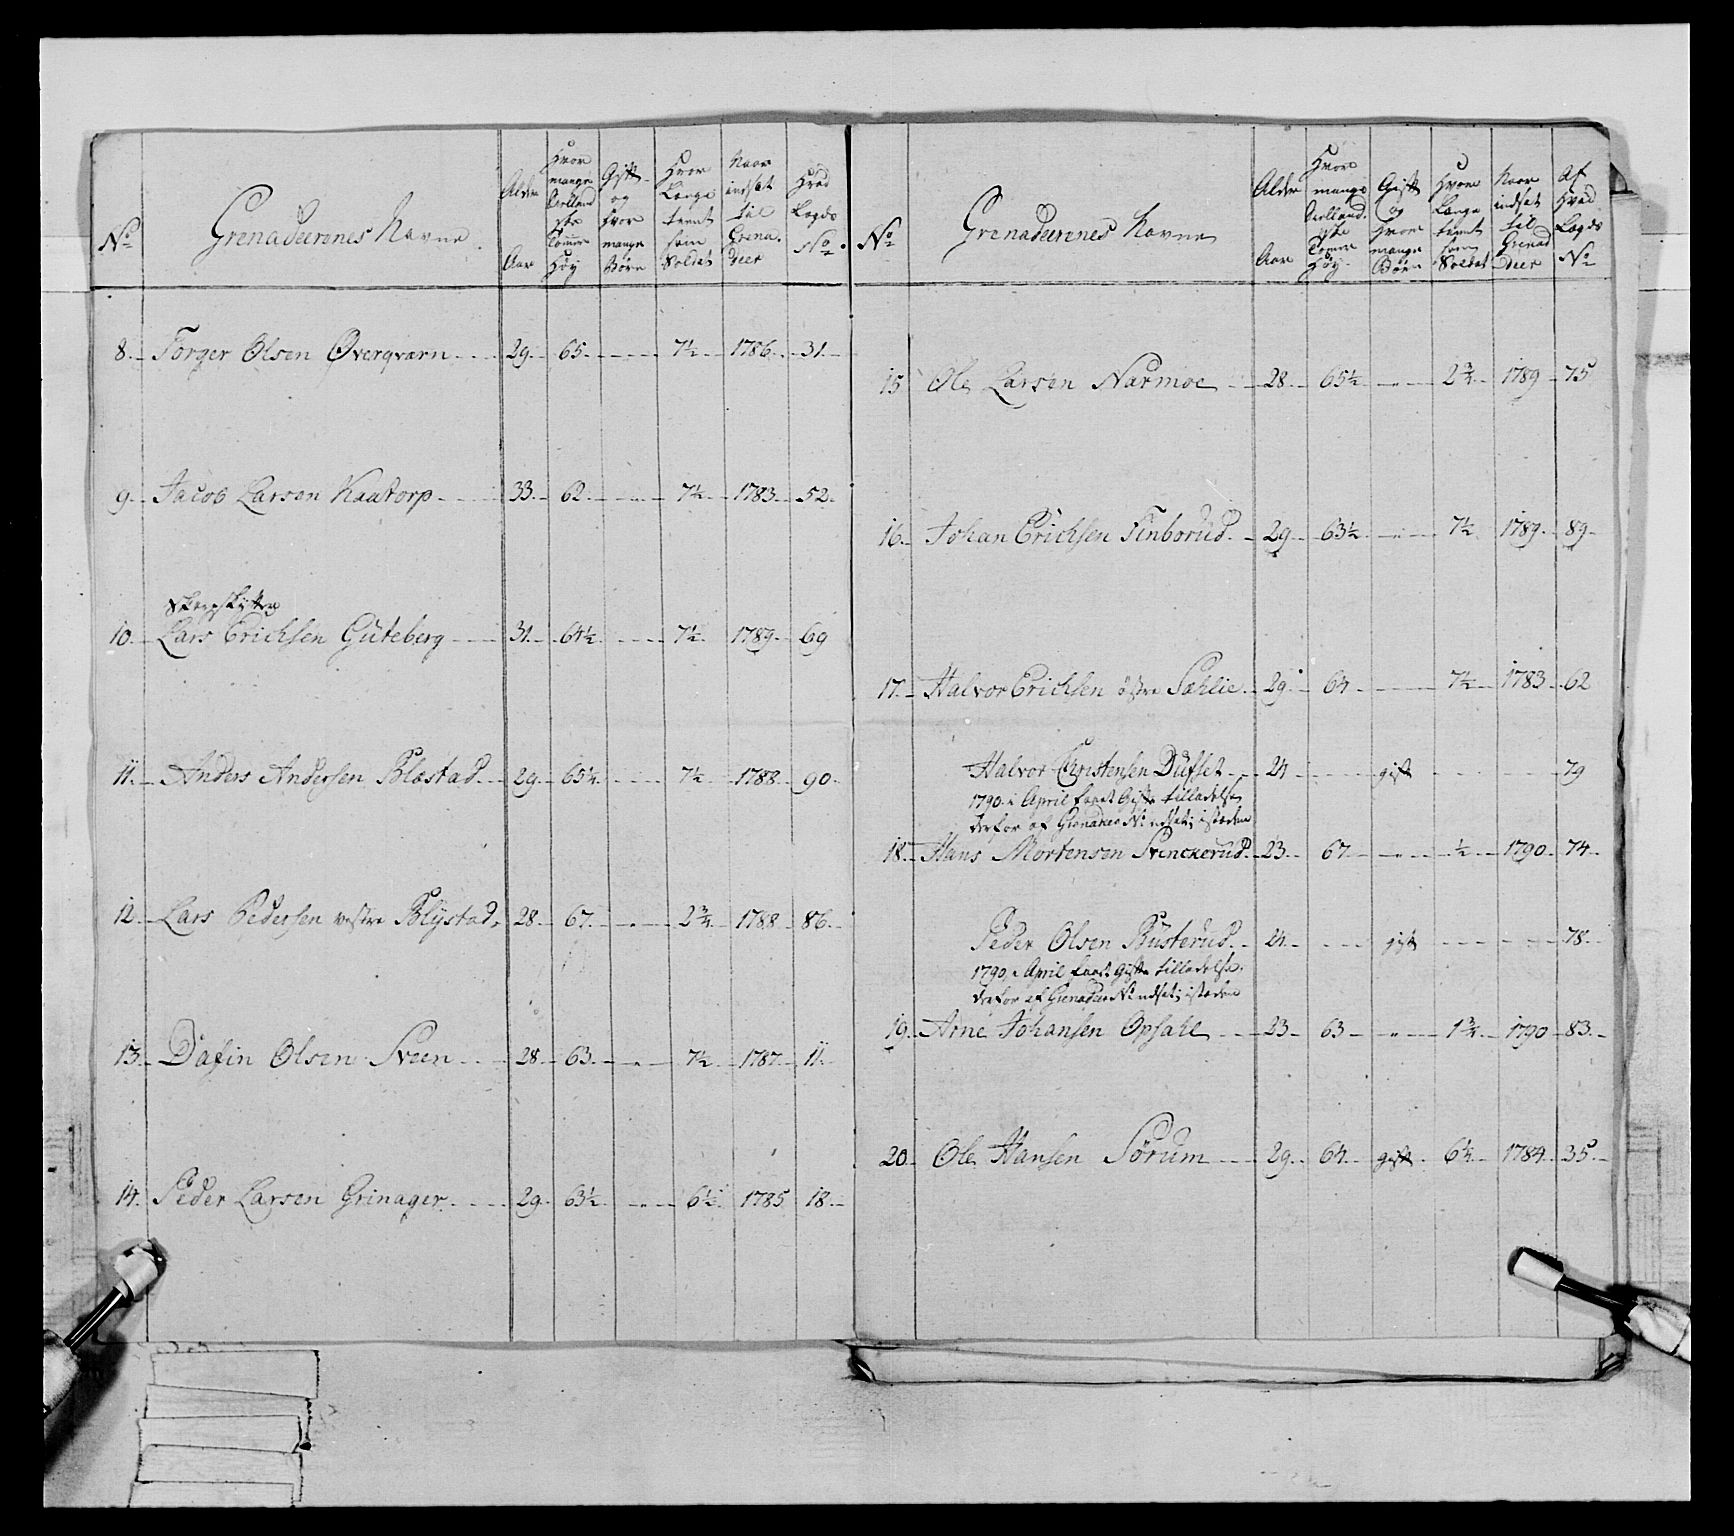 No
Grenadeerenes Navne
Alder Aar
Hvor mange Siellandske Tommer Høy
Gift og hvor mange Børn
Hvor Længe tient som Soldat
Naar indsat til Grenadeer
Hvad Legds No
8. Torger Olsen Øverqvarn 29. 65. 7½ 1786. 31.
9. Jacob Larsen Kaatorp 33. 62. 7½ 1783. 52.
Skarpskytter
10. Lars Erichsen Gúteberg 31. 64½ 7½ 1789. 69
11. Anders Andersen Blæstad 29. 65¼ 7½ 1788. 90.
12. Lars Pedersen vestre Blÿstad. 28. 67. 2¾ 1788. 86.
13. Dafin Olsen Sveen 28. 63. 7½ 1787. 11.
14. Peder Larsen Grinager 29. 63½ 6½ 1785 18.
No
Grenadeerenes Navne
Alder Aar
Hvor mange Siellandske Tommer Høy
Gift og hvor mange Børn
Hvor Længe tient som Soldat
Naar indsat til Grenadeer
Af Hvad Legds No
15 Ole Larsen Narmoe 28. 65½ 2¾ 1789 75
16. Johan Erichsen Finborúd. 29. 63½ 7½ 1789. 89.
17. Halvor Erichsen östre Sæhlie 29. 64 7½ 1783. 62
Halvor Christensen Dúfset 24 gift 79
1790 i April faaet Gifte tilladelse
derfor af Grenadeer No udsat; istæden
18. Hans Mortensen Svenckerúd. 23. 67 ½ 1790. 74.
Peder Olsen Bústerúd. 24. gift 78.
1790, i April faaet Gifte tilladelse.
derfor af Grenadeer No udsat; istæden
19. Arne Johansen Opsahl 23 63 1¾ 1790 83.
20. Ole Hansen Sørum 29. 64. gift 6¼ 1784. 35.